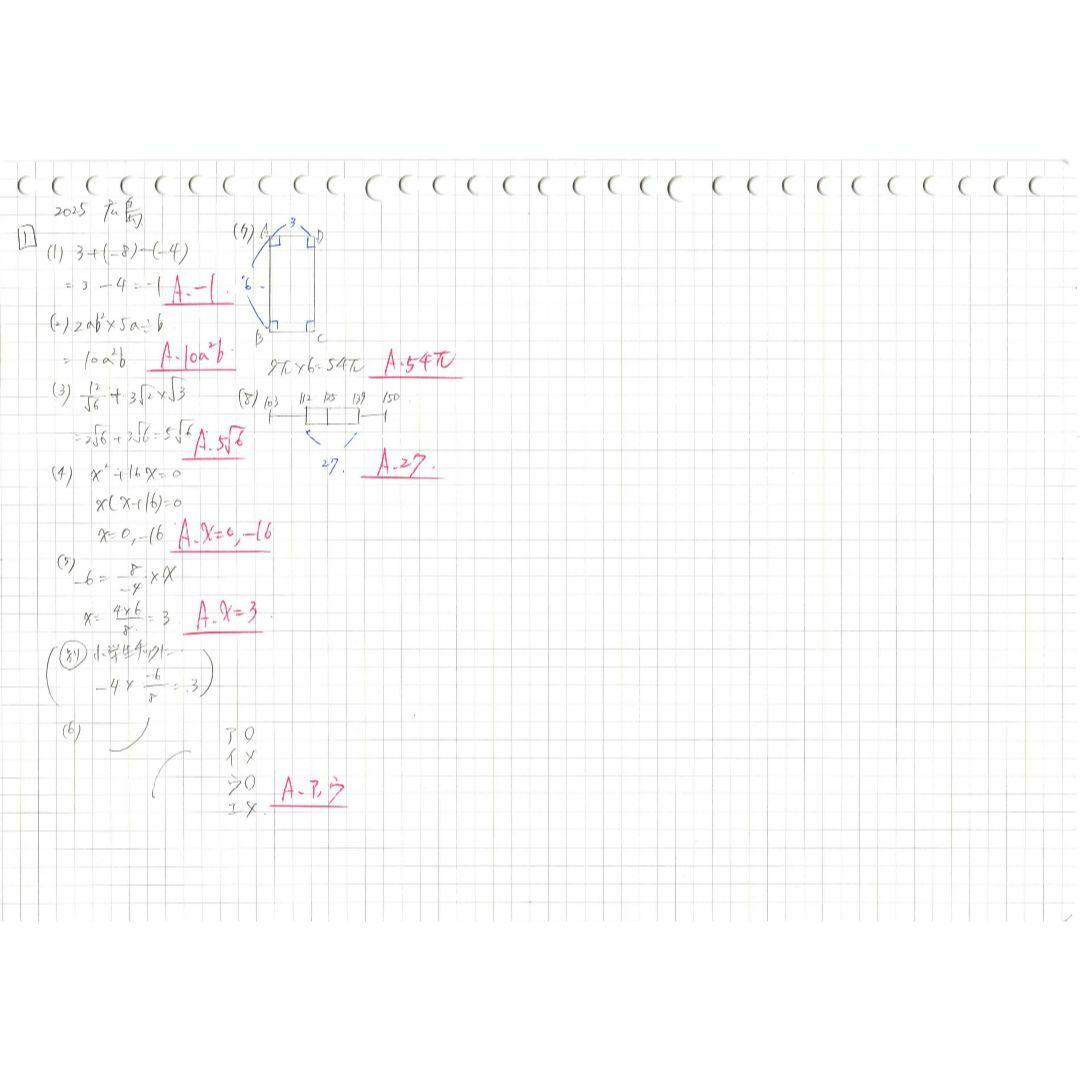 2025 広島
1
(1) 3+(-8)-(-4)
= 3 -4 = -1 A.-1.
(2) 2ab²×5a÷b
= 10a²b A.10a²b.
(3) 12/√6 + 3√2×√3
=2√6+3√6=5√6 A.5√6
(4) x²+16x=0
x(x+16)=0
x=0,-16 A.x=0,-16
(5) -6= 8/-4 ×x
x= 4×6/8 = 3 A.x=3
-4× -6/8 = 3
(6)
ア〇
イ×
ウ〇
エ×
A.ア,ウ
(7) A 3 D
6
B C
9π×6=54π A.54π
(8) 103 112 125 139 150
27. A.27.